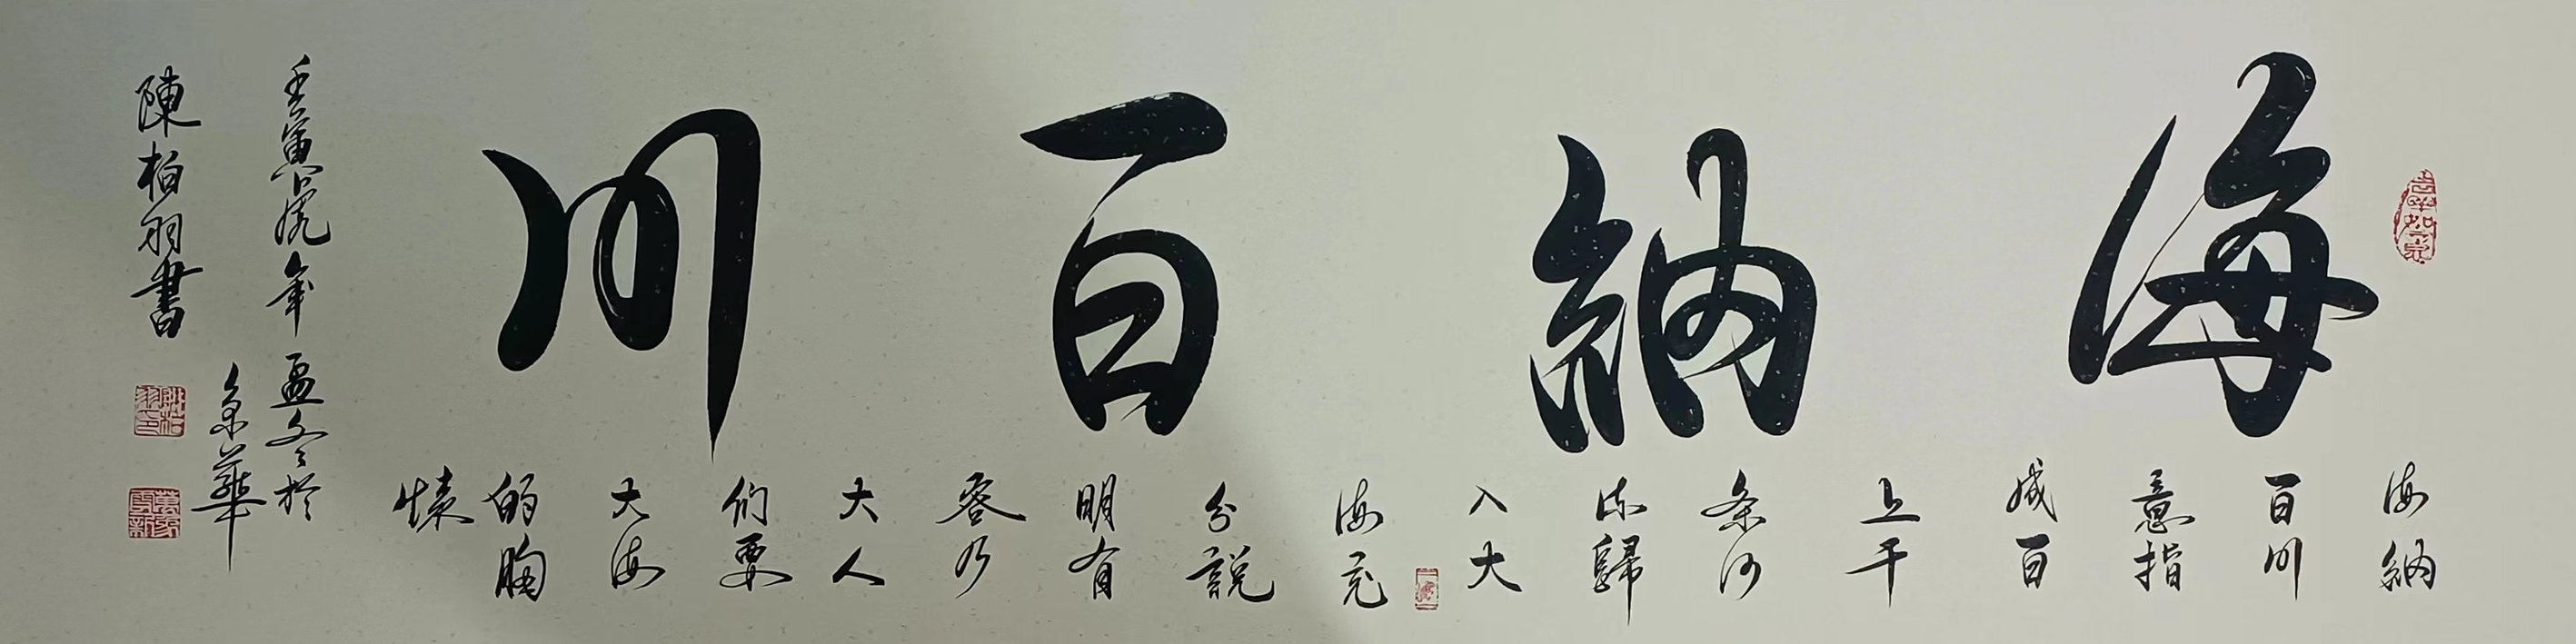 海納百川
海納
百川
意指
成百
上千
条河
流歸
入大
海充
分説
明有
容乃
大人
们要
大海
的胸
懐
壬寅虎年孟冬於
京華
陳柏羽書